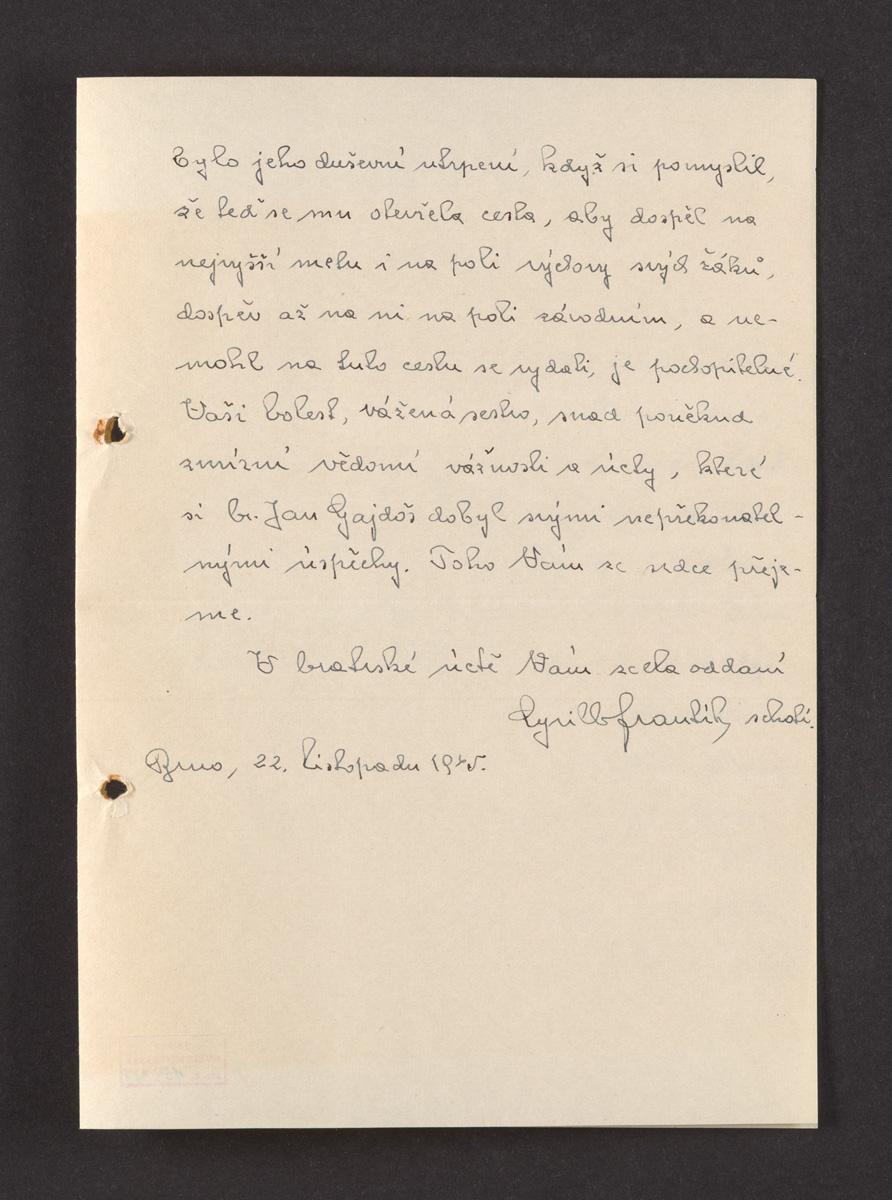 bylo jeho duševní utrpení, když si pomyslil,
že teď se mu otevřela cesta, aby dospěl na
nejvyšší metu i na poli výchovy svých žáků,
dospěv až na ni na poli závodním, a ne-
mohl na tuto cestu se vydati, je pochopitelné.
Vaši bolest, vážená sestro, snad poněkud
zmírní vědomí vážnosti a úcty, které
si br. Jan Gajdoš dobyl svými nepřekonatel-
nými úspěchy. Toho Vám ze srdce přeje-
me.
V bratrské úctě Vám zcela oddaní
Cyrill
Brno, 22. listopadu 1945.